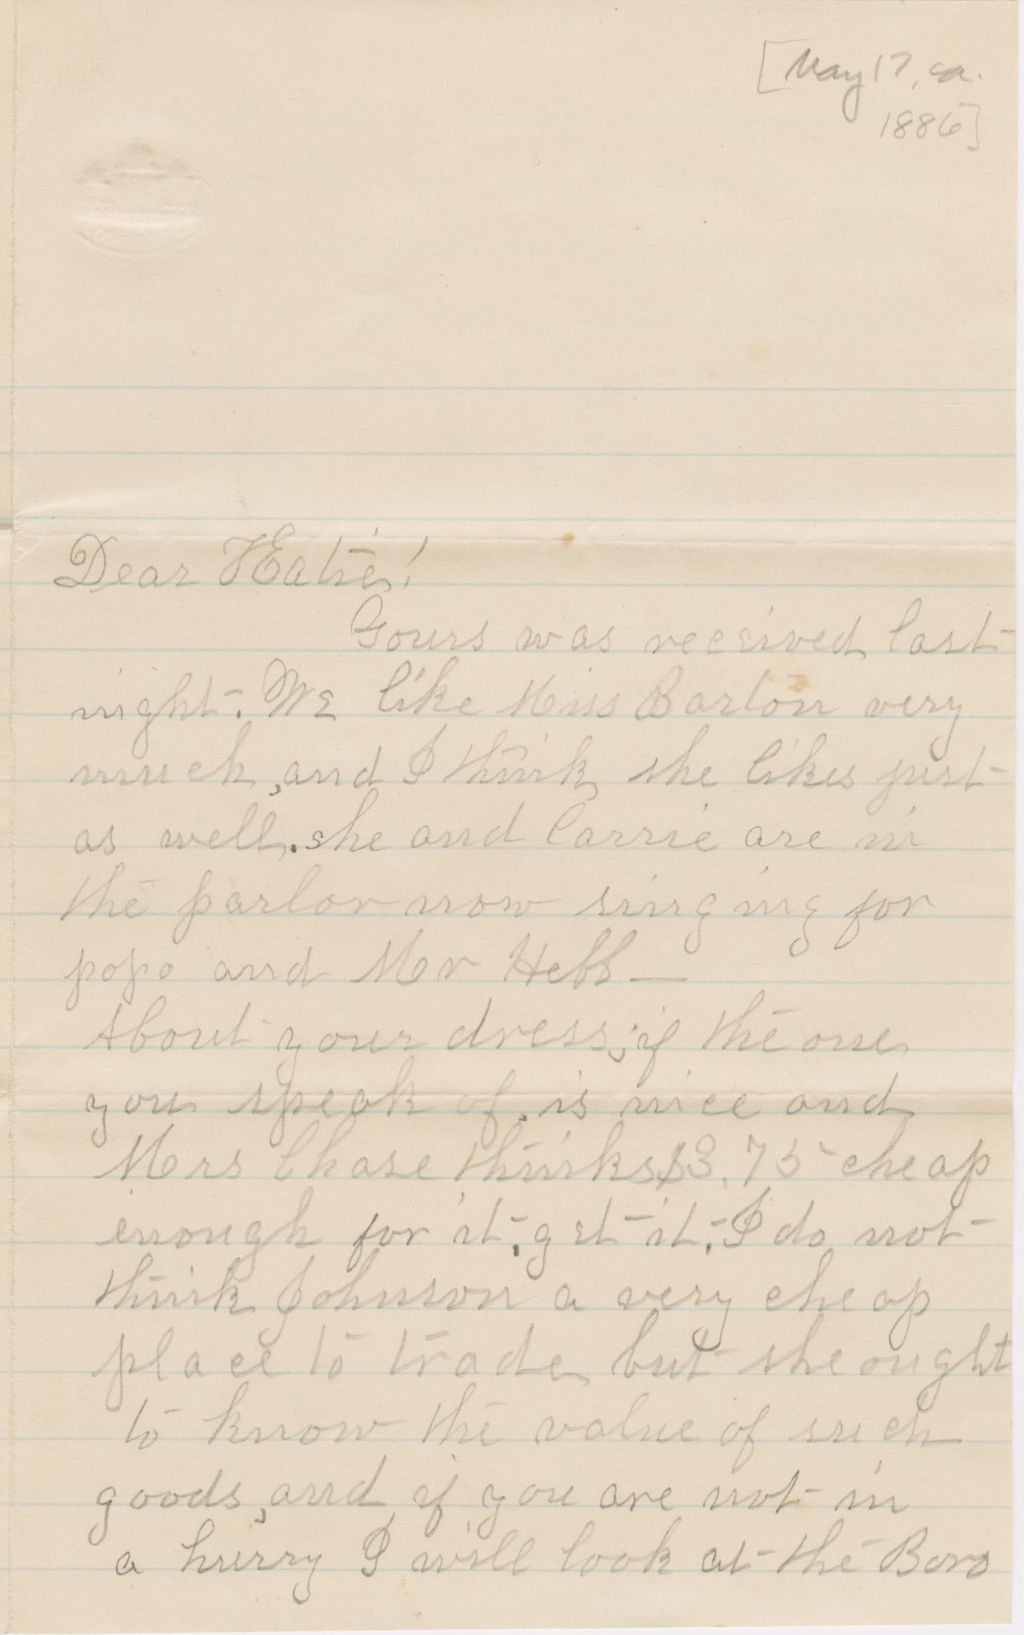 [May 17, ca.
1886]
Dear Hatie!
Yours was received last
night. We like Miss Barton very
much, and I think she likes just
as well. she and Carrie are in
the parlor now singing for
papa and Mr Hebb—
About your dress; if the one
you speak of, is nice and
Mrs Chase thinks $3.75 cheap
enough for it, get it, I do not
think Johnson a very cheap
place to trade but she ought
to know the value of such
goods, and if you are not in
a hurry I will look at the Boro